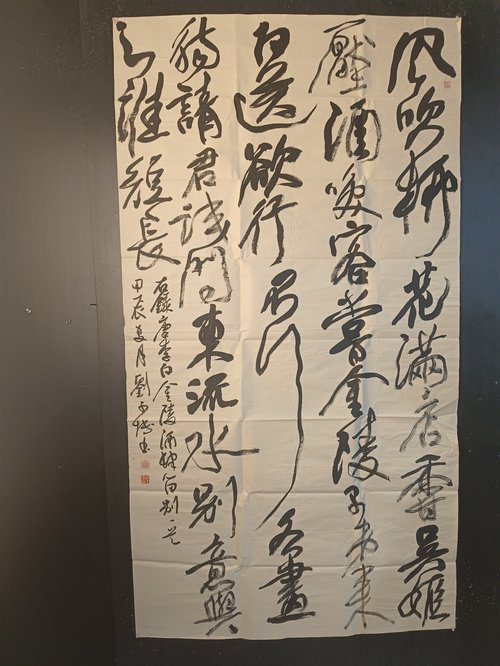 风吹柳花滿店香吳姬
壓酒喚客嘗金陵子弟来
相送欲行不行各盡
觴請君試問東流水別意與
之誰短長
右錄唐李白金陵酒肆留別一首
甲辰夏月劉子書